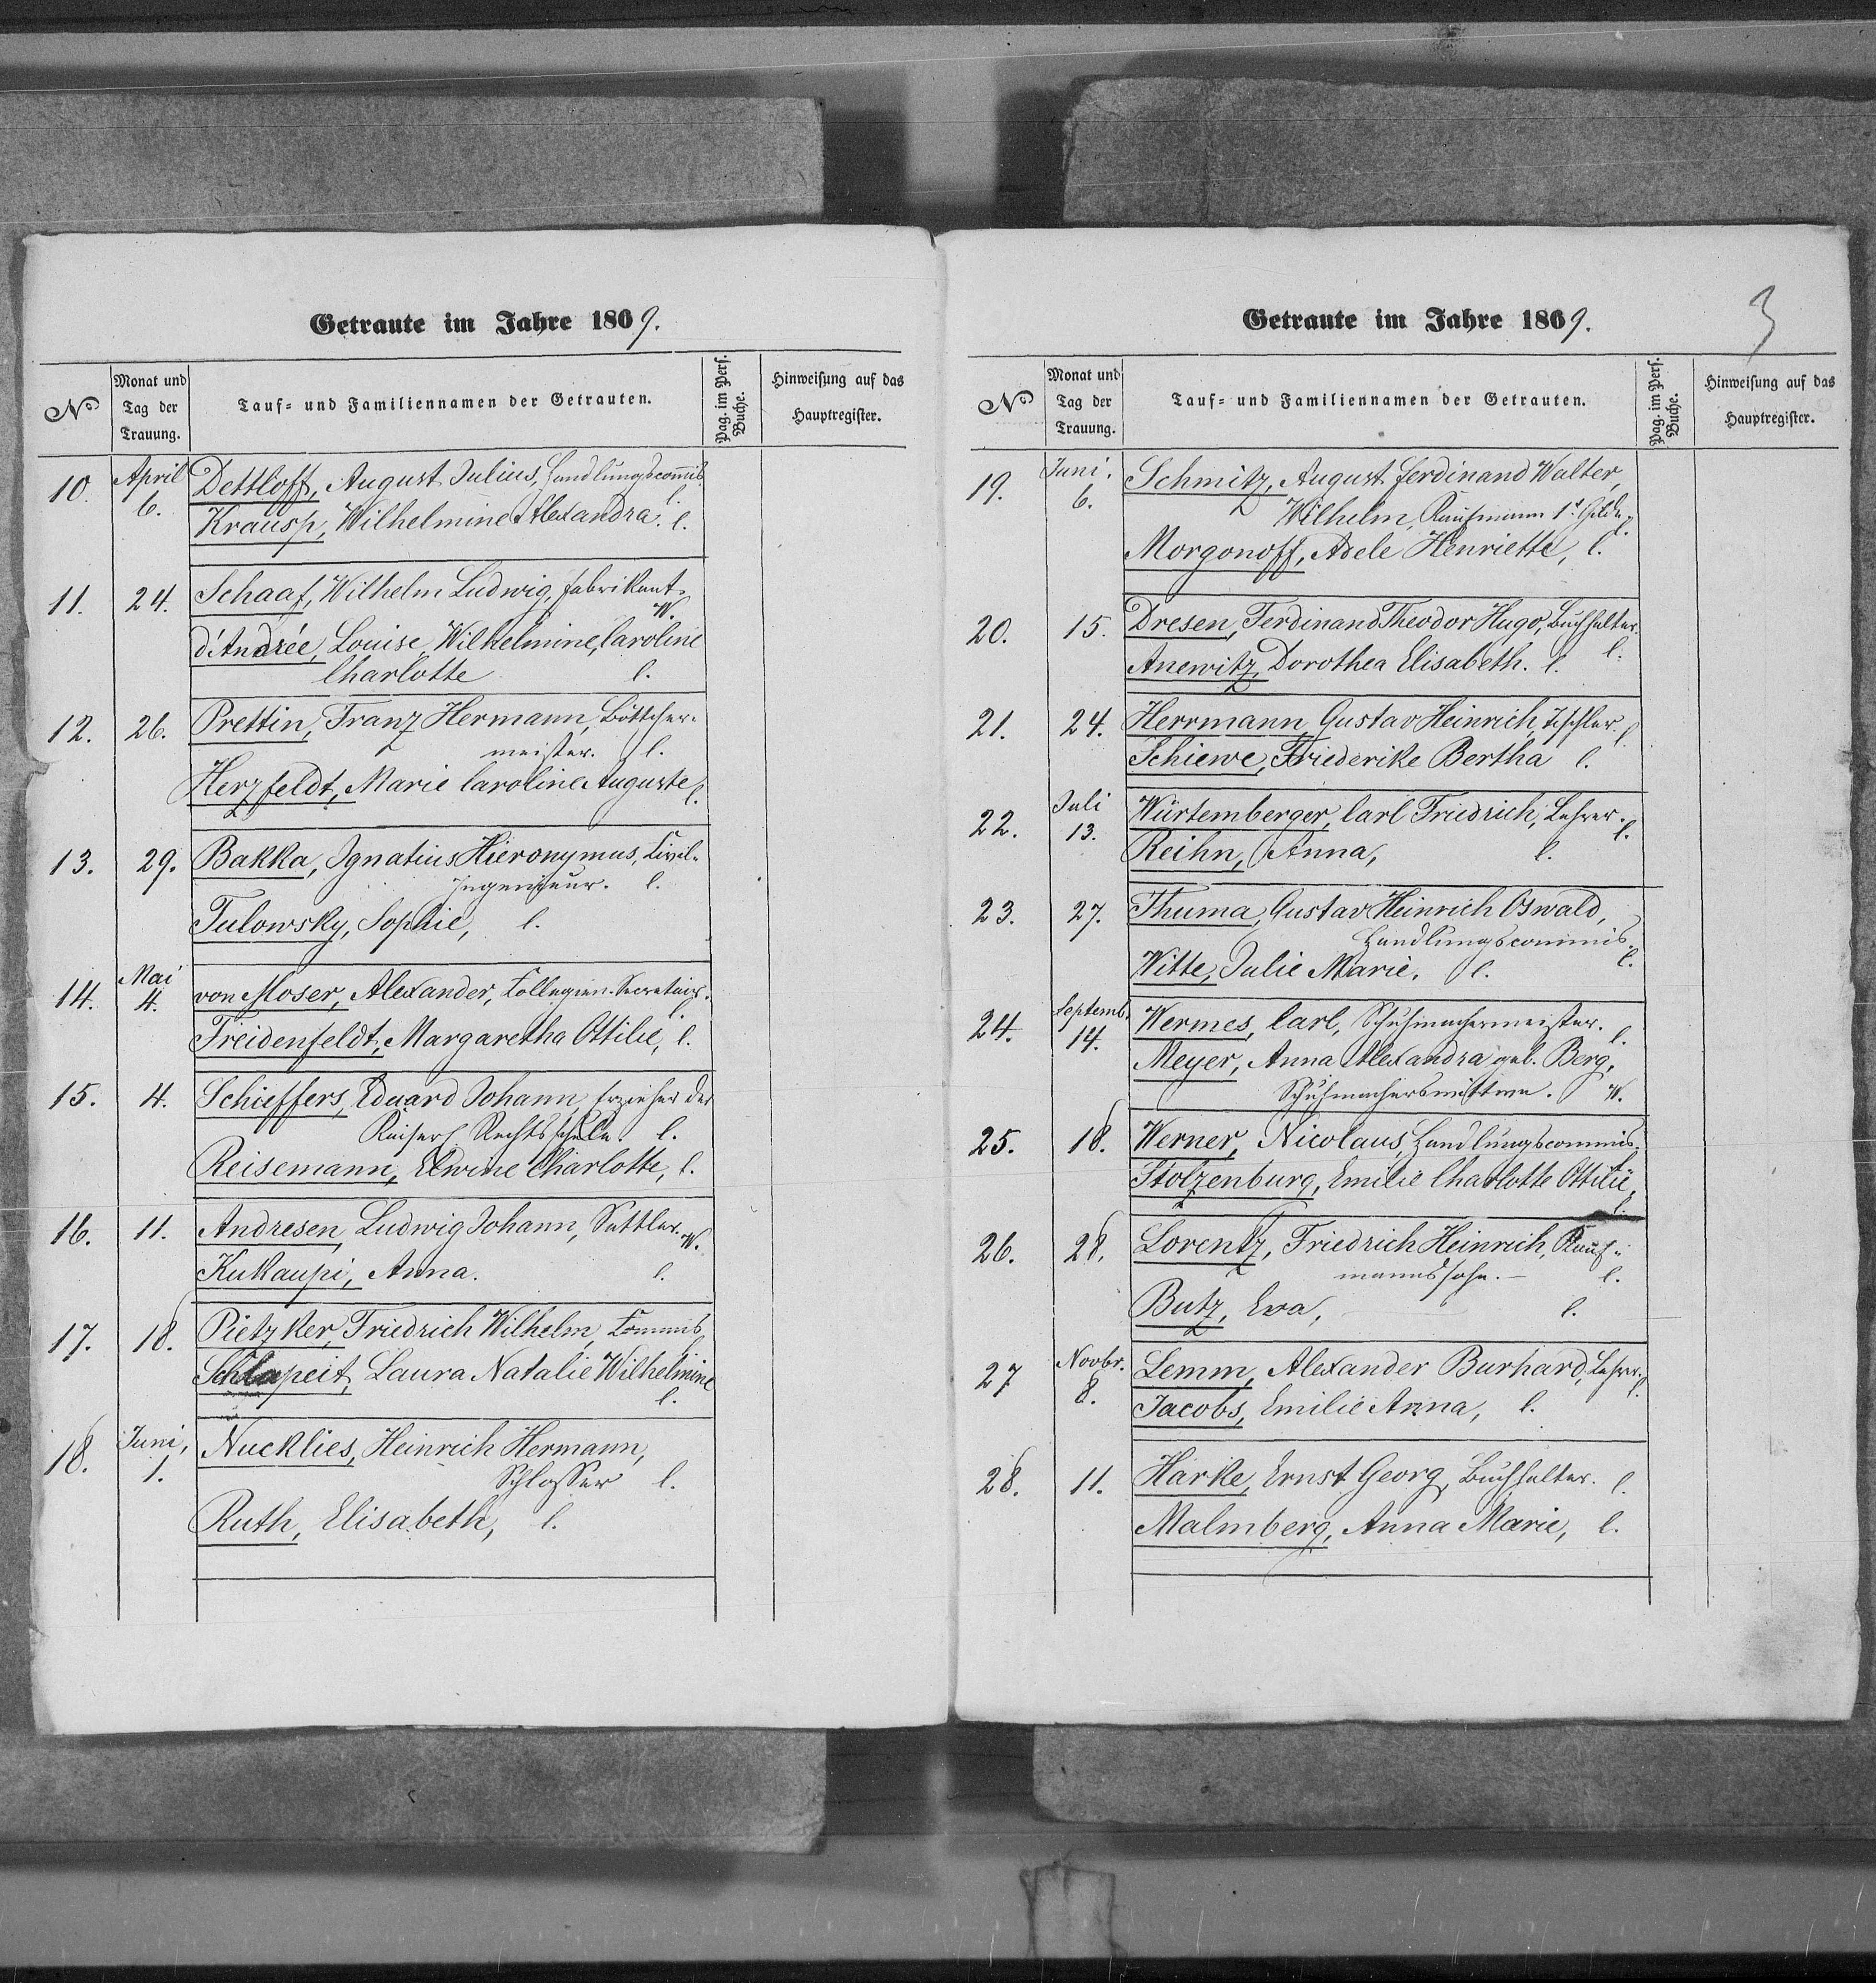 Getraute im Jahre 1869.
No
Monat und
Tag der
Trauung.
Tauf- und Familiennamen der Getrauten.
Pag. im Pers.
Buche.
Hinweisung auf das
Hauptregister.
10. April 6. Dettloff, August Julius, Handlungscommis. l.
Krausp, Wilhelmine Alexandra. l.
11. 24. Schaaf, Wilhelm Ludwig, Fabrikant. W.
d'Andrée, Louise, Wilhelmine, Caroline
Charlotte l.
12. 26. Prettin, Franz Hermann, Böttcher-
meister. l.
Herzfeldt, Marie Caroline Auguste l.
13. 29. Bakka, Ignatius Hieronymus, Civil-
Ingenieur. l.
Tulowsky, Sophie, l.
14. Mai 4. von Moser, Alexander, Collegien-Secretair. l.
Freidenfeldt, Margaretha Ottilie, l.
15. 4. Schieffers, Eduard Johann, Erzieher der
Kaiserl. Rechtsschule. l.
Reisemann, Elwine Charlotte, l.
16. 11. Andresen, Ludwig Johann, Sattler. W.
Kukaupi, Anna. l.
17. 18. Pietzker, Friedrich Wilhelm, Commis l.
Schlapeit, Laura Natalie Wilhelmine
l.
18. Juni, 1. Nucklies, Heinrich Hermann,
Schlosser l.
Ruth, Elisabeth, l.
3
Getraute im Jahre 1869.
No
Monat und
Tag der
Trauung.
Tauf- und Familiennamen der Getrauten.
Pag. im Pers.
Buche.
Hinweisung auf das
Hauptregister.
19. Juni. 6. Schmitz, August Ferdinand Walter,
Wilhelm, Kaufmann 1r Gilde. l.
Morgonoff, Adele Henriette, l.
20. 15. Dresen, Ferdinand Theodor Hugo, Buchhalter. l.
Anewitz, Dorothea Elisabeth. l.
21. 24. Herrmann, Gustav Heinrich, Tischler. l.
Schiewe, Friederike Bertha l.
22. Juli 13. Würtemberger, Carl Friedrich, Lehrer. l.
Reihn, Anna, l.
23. 27. Thuma, Gustav Heinrich Oswald,
Handlungscommis. l.
Witte, Julie Marie, l.
24. Septemb. 14. Wermes, Carl, Schuhmachermeister. l.
Meyer, Anna Alexandra geb. Berg,
Schuhmacherswittwe. W.
25. 18. Werner, Nicolaus, Handlungscommis. l.
Stolzenburg, Emilie Charlotte Ottilie,
l.
26. 28. Lorentz, Friedrich Heinrich, Kauf-
mannssohn. — l.
Butz, Eva, l.
27 Novbr. 8. Lemm, Alexander Burhard, Lehrer. l.
Jacobs, Emilie Anna, l.
28. 11. Harke, Ernst Georg, Buchhalter. l.
Malmberg, Anna Marie, l.